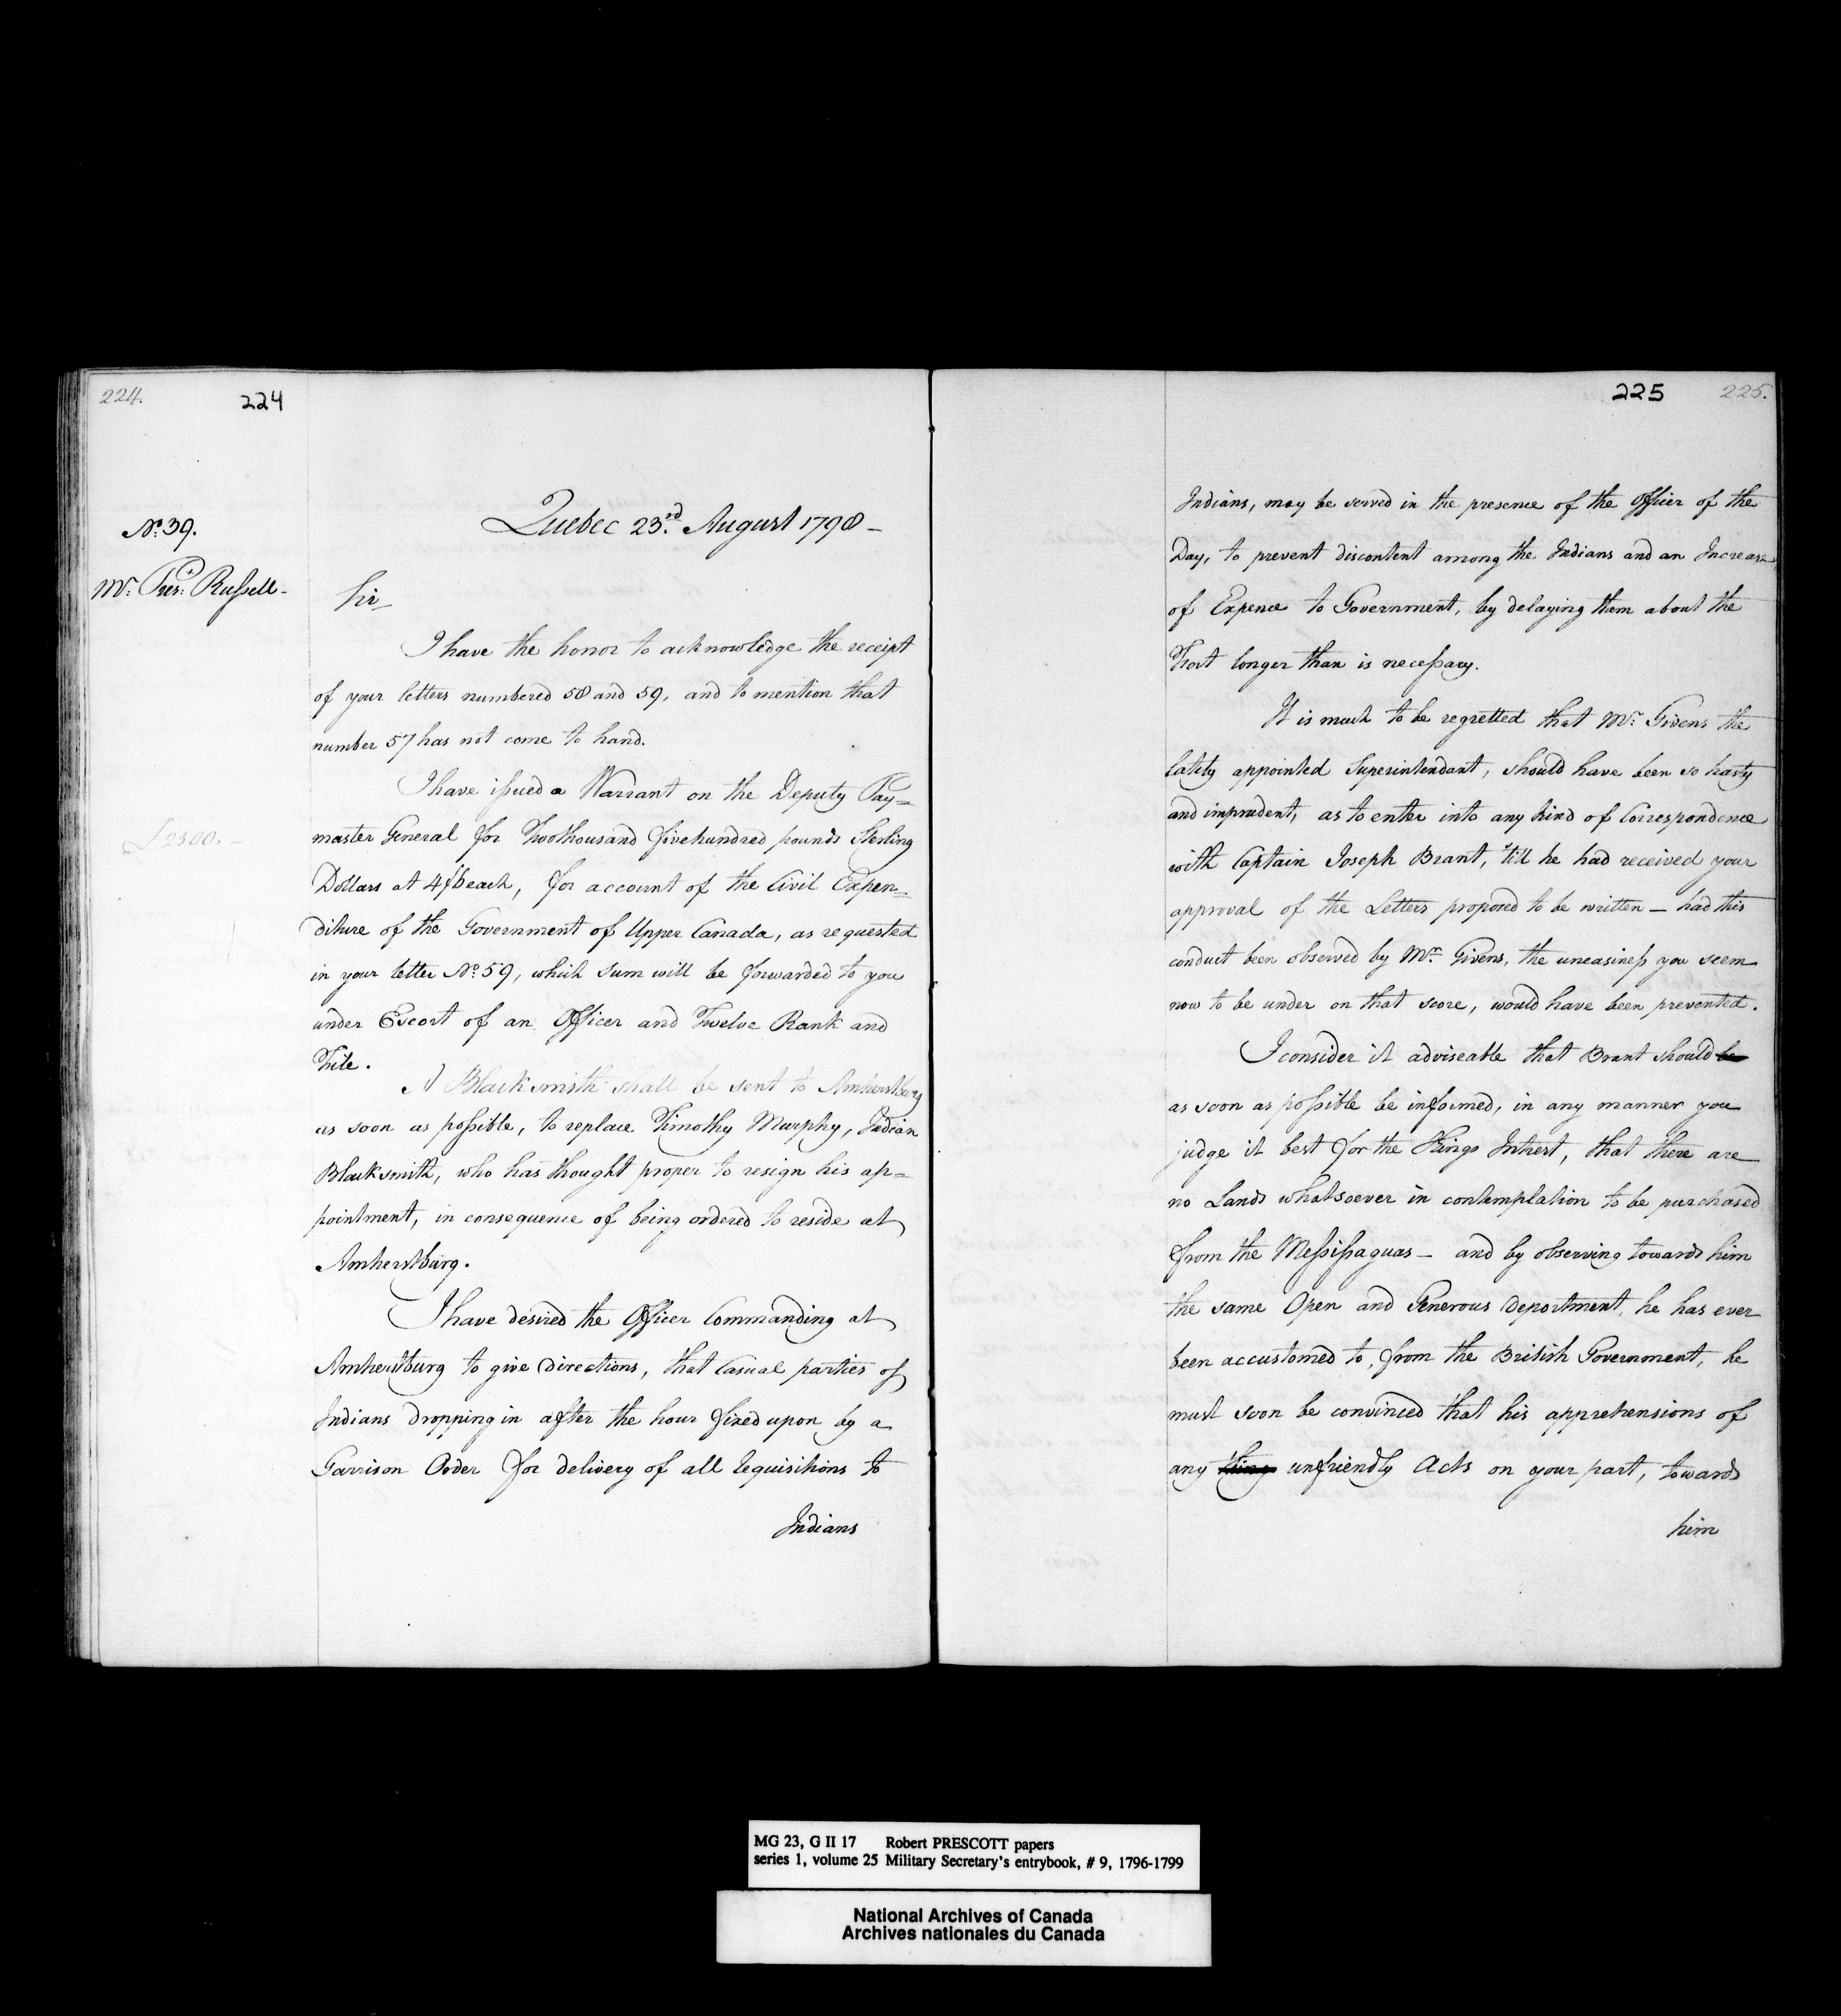 224.
224
Quebec 23.rd August 1798 -
No. 39.
Mr. Presdt. Russell -
Sir
I have the honor to acknowledge the receipt
of your letters numbered 58 and 59, and to mention that
number 57 has not come to hand.
I have issued a Warrant on the Deputy Pay=
£2500. -
master General for Twothousand fivehundred pounds Sterling
Dollars at 4/6 each, for account of the Civil Expen=
diture of the Government of Upper Canada, as requested
in your letter No. 59, which sum will be forwarded to you
under Escort of an Officer and Twelve Rank and
File.
A Blacksmith shall be sent to Amherstburg
as soon as possible, to replace Timothy Murphy, Indian
Blacksmith, who has thought proper to resign his ap=
pointment, in consequence of being ordered to reside at
Amherstburg.
I have desired the Officer Commanding at
Amherstburg to give directions, that Casual parties of
Indians dropping in after the hour fixed upon by a
Garrison Order for delivery of all requisitions to
Indians
225
225.
Indians, may be served in the presence of the Officer of the
Day, to prevent discontent among the Indians and an Increase
of Expence to Government, by delaying them about the
Fort longer than is necessary.
It is much to be regretted that Mr. Givens the
lately appointed Superintendant, should have been so hasty
and imprudent, as to enter into any kind of Correspondence
with Captain Joseph Brant, 'till he had received your
approval of the Letters proposed to be written — had this
conduct been observed by Mr. Givens, the uneasiness you seem
now to be under on that score, would have been prevented.
I consider it adviseable that Brant should be
as soon as possible be informed, in any manner you
judge it best for the Kings Interest, that there are
no Lands whatsoever in contemplation to be purchased
from the Messissaguas — and by observing towards him
the same Open and Generous deportment, he has ever
been accustomed to, from the British Government, he
must soon be convinced that his apprehensions of
any thing unfriendly Acts on your part, towards
him
MG 23, G II 17 Robert PRESCOTT papers
series 1, volume 25 Military Secretary's entrybook, # 9, 1796-1799
National Archives of Canada
Archives nationales du Canada